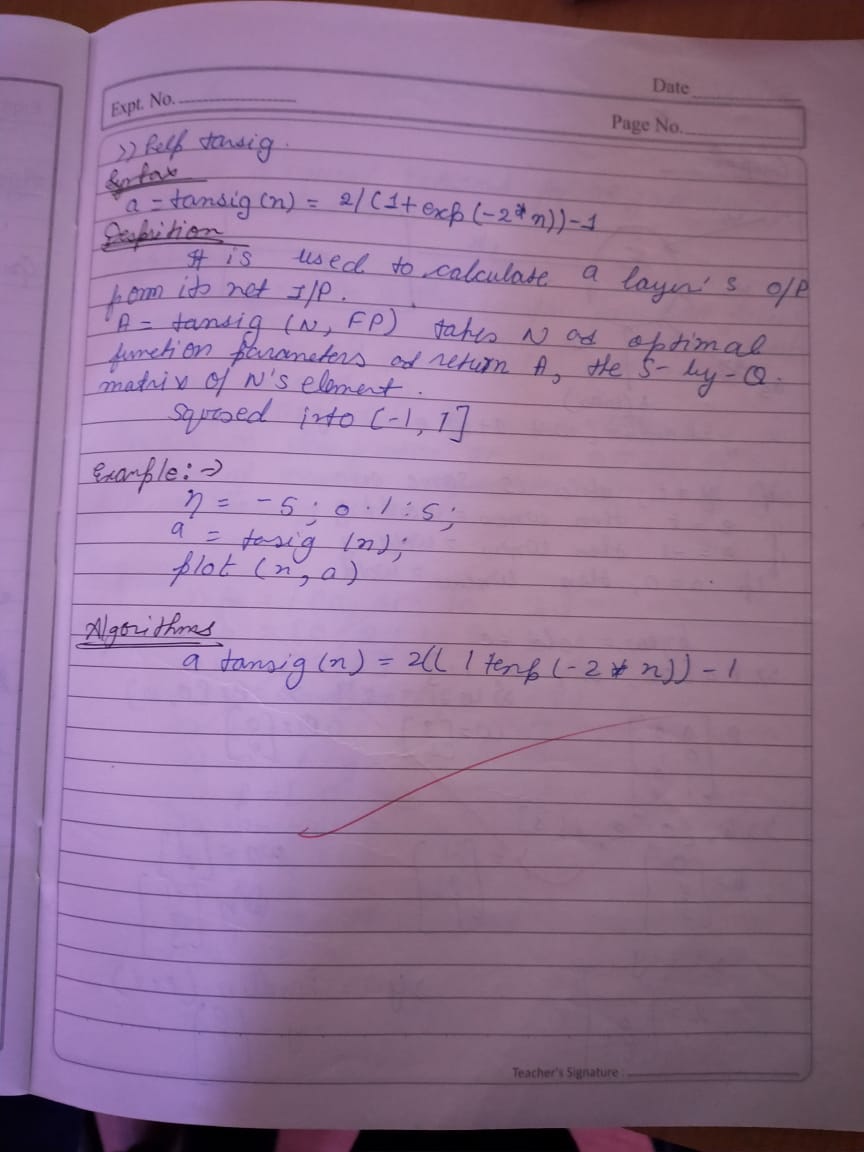 Date
Expt. No.
Page No.
>> Help tansig
Syntax
a = tansig (n) = 2/(1+exp(-2*n))-1
It is used to calculate a layer's O/P
from its net I/P.
A = tansig (N, FP) takes N ad optimal
function parameters ad return A, the S-by-Q
matrix of N's element.
into [-1, 1]
Example:->
n = -5 ; 0.1 : 5;
a = tasig (n);
plot (n, a)
Algorithms
a tansig (n) = 2(( 1 + exp (-2 * n)) - 1
Teacher's Signature :